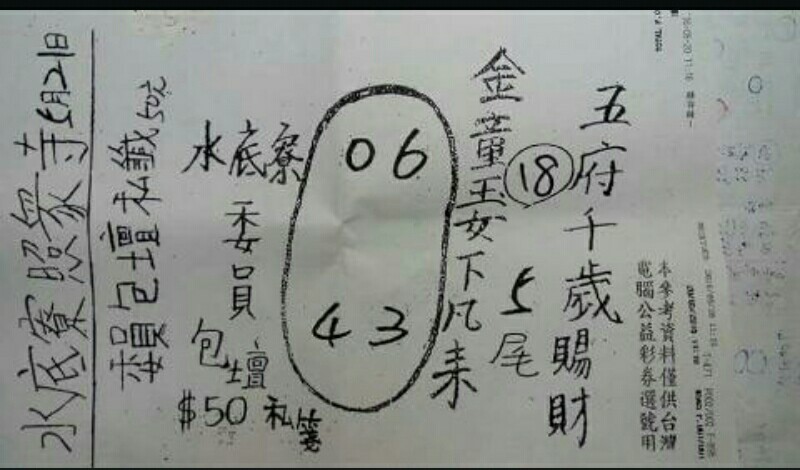 本參考資料僅供台灣
電腦公益彩券選號用
五府千歲賜財
18
5尾
金童玉女下凡来
06
43
水底寮
委員
包壇
$50 私箋
賴包壇私籤50元
水底寮照衆寺5月21日